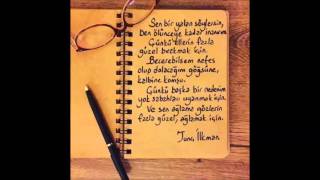 Sen bir yalan söylersin,
Ben ölünceye kadar inanırım
Çünkü ellerin fazla
güzel bırakmak için.
Becerebilsem nefes
olup dolacağım göğsüne,
kalbine komşu.
Çünkü başka bir nedenim
yok sabahları uyanmak için.
Ve sen ağlama gözlerin
fazla güzel, ağlamak için.
Tunç İlkman